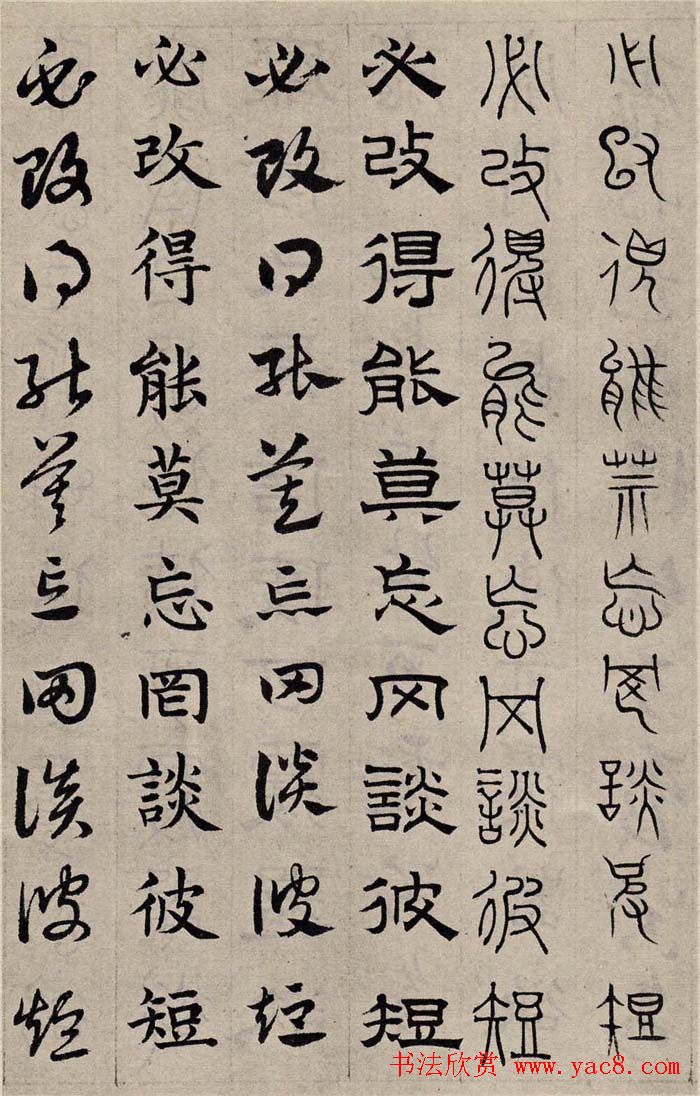 必改得能莫忘罔談彼短
必改得能莫忘罔談彼短
必改得能莫忘罔談彼短
必改得能莫忘罔談彼短
必改得能莫忘罔談彼短
必改得能莫忘罔談彼短
书法欣赏 www.yac8.com